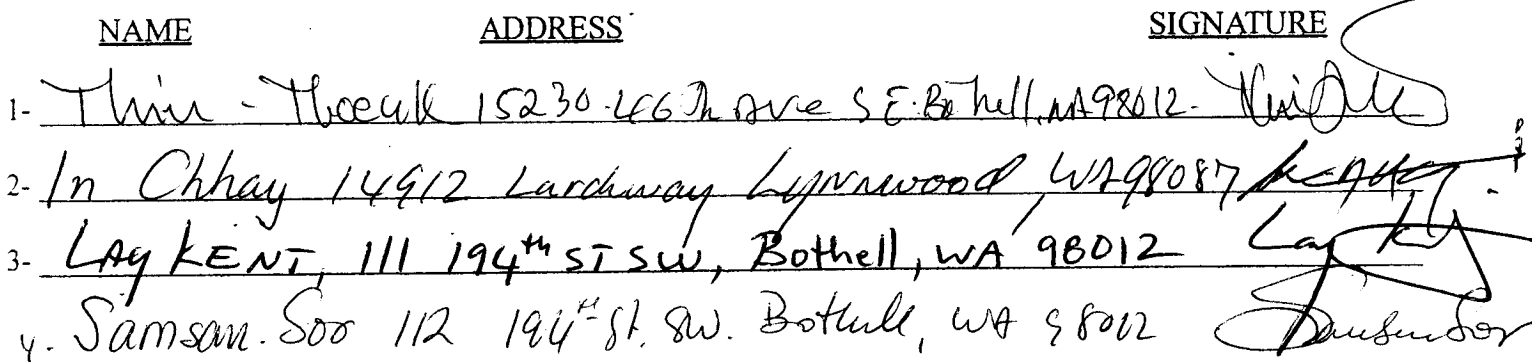 NAME ADDRESS SIGNATURE
1- Thin - Thoeuk 15230-46Th Ave S E. Bothell, WA 98012-
2- In Chhay 14912 Larchway Lynnwood, WA 98087
3- LAY KENT, 111 194th ST SW, Bothell, WA 98012 Lay
4. Samsan. Soo 112 194th St. SW. Bothell, WA 98012 Samsan Soo